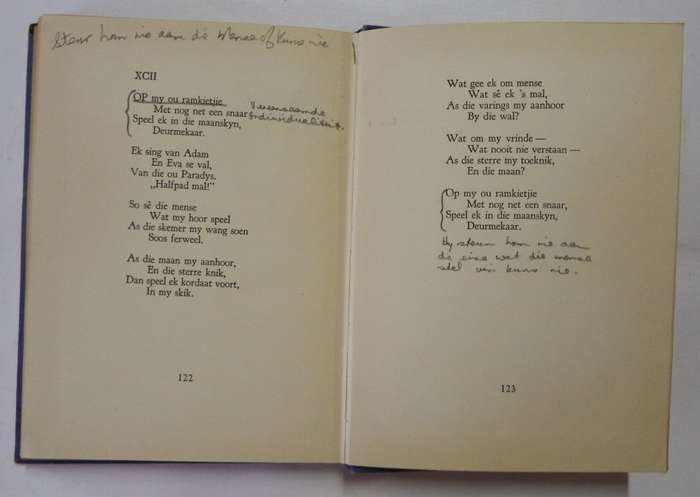 Steur hom nie aan die Mense of Kuns nie
XCII
OP my ou ramkietjie
Met nog net een snaar
Speel ek in die maanskyn,
Deurmekaar.
Individualiteit.
Ek sing van Adam
En Eva se val,
Van die ou Paradys.
„Halfpad mal!”
So sê die mense
Wat my hoor speel
As die skemer my wang soen
Soos ferweel.
As die maan my aanhoor,
En die sterre knik,
Dan speel ek kordaat voort,
In my skik.
122
Wat gee ek om mense
Wat sê ek 's mal,
As die varings my aanhoor
By die wal?
Wat om my vrinde —
Wat nooit nie verstaan —
As die sterre my toeknik,
En die maan?
Op my ou ramkietjie
Met nog net een snaar,
Speel ek in die maanskyn,
Deurmekaar.
Hy steur hom nie aan
die eise wat die mense
stel vir kuns nie.
123